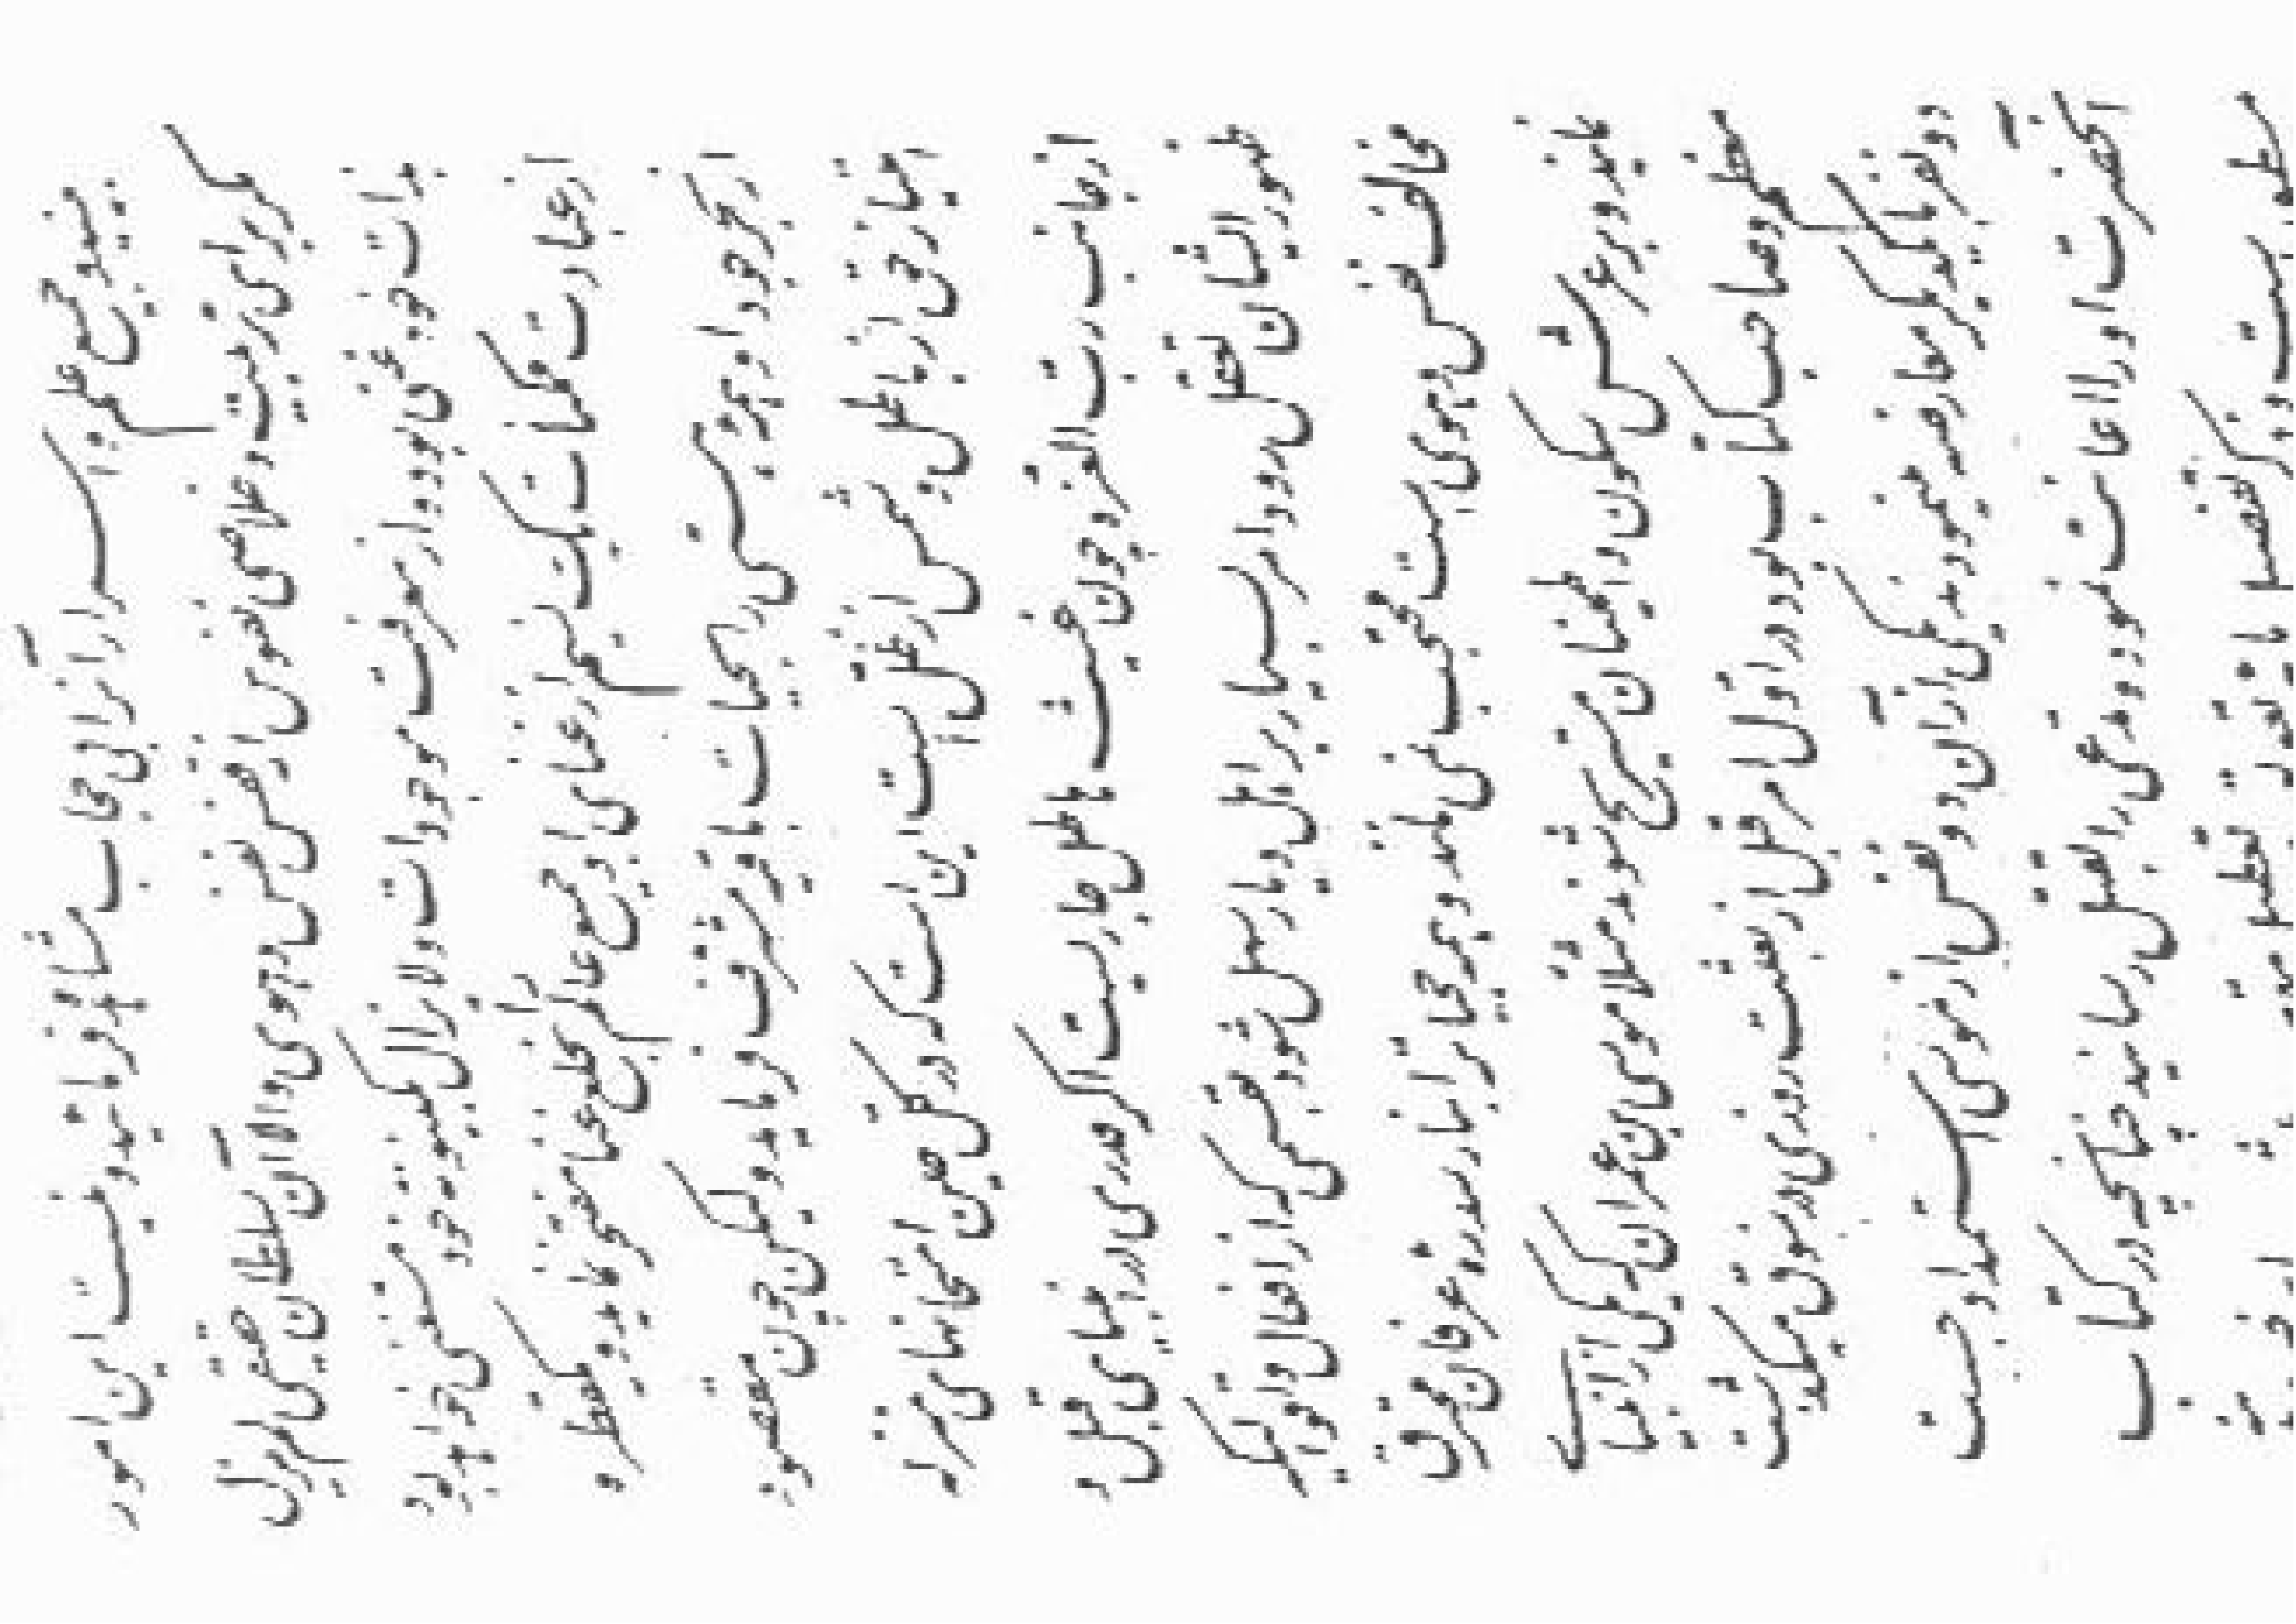 جمیع را از آن فرمایند و نیست این امور
مگر برای تربیت و خلاصی نفوس از قفس نفس و هوی والا آن سلطان حقیقی لم یزل
بذات خود غنی بوده از معرفت موجودات و لا یزال بکینونة خود مستغنی خواهد بود
از عبادت ممکنات یک نسیم از غنای او جمیع عالم را بخلع غنا مفتخر نماید و یک قطره
از بحر جود او همه هستی را بحیات باقیه مشرف فرماید ولیکن چون مقصود
امتیاز حق از باطل و شمس از ظل است اینست که در کل حین امتحانهای منزله
از جانب رب العزه چون غیث هاطل جاریست اگر قدری در انبیای قبل و
ظهور ایشان تعقل رود امر بسیار بر اهل دیار سهل شود بقسمی که از افعال و اقوالیکه
مخالف نفس و هوی است محتجب نمی‌مانند و همه حجبات را بنار سدره عرفان محترق
نمایند و بر عرش سکون و اطمینان مستریح شوند مثلا موسی بن عمران که یکی از انبیای
معظم و صاحب کتاب بود در اول امر قبل از بعثت روزی در سوق میگذشت
دو نفر با یکدیگر معارضه مینمودند یکی از آن دو نفس از موسی استمداد جست
آنحضرت او را اعانت نموده و مدعی را بقتل رسانید چنانچه در کتاب
مسطور است و ذکر تفصیل تعطیل